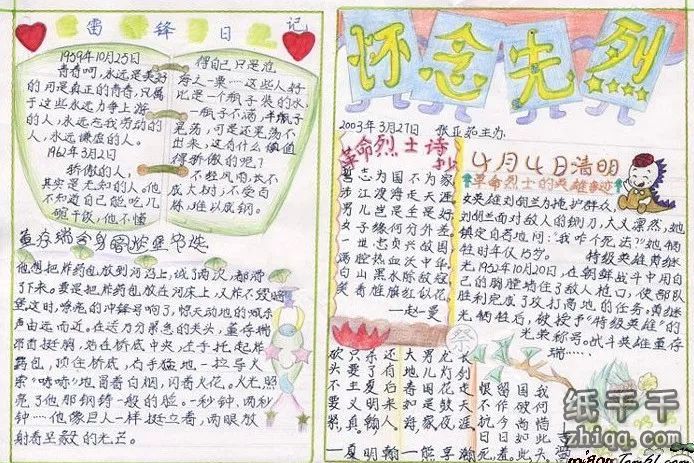 雷锋日记
1959年10月25日
青春呵,永远是美好
的,可是真正的青春,只属
于这些永远力争上游
的人,永远忘我劳动的
人,永远谦虚的人。
1962年3月2日
骄傲的人,
其实是无知的人。他
不知道自己能吃几
碗干饭,他不懂
得自己只是沧
海之一粟……这些人好
比是一个瓶子装的水,
一瓶子不满,半瓶子
晃荡,可是还晃荡不
出来,这有什么值得
骄傲的呢?
不经风雨,长不
成大树;不受百
炼,难以成钢。
董存瑞舍身炸碉堡
他想把炸药包放到河沿上,试了两次,都滑
了下来。要是把炸药包放在河床上,又炸不毁碉
堡。这时,嘹亮的冲锋号响了,惊天动地的喊杀
声由远而近。在这万分紧急的关头,董存瑞
昂首挺胸,站在桥底中央,左手托起炸
药包,顶住桥底,右手猛地一拉导火
索“嘶嘶”地冒着白烟,闪着火花。火光照
亮了他那钢铸一般的脸。一秒钟、两秒
钟……他像巨人一样挺立着,两眼放
射着坚毅的光芒。
怀念先烈
2003年3月27日 张亚苑主办
革命烈士诗抄
誓志为国不为家
涉江渡海走天涯
男儿岂是全是好
女子缘何分外差
一世忠贞兴故国
满腔热血沃中华
白山黑水除敌寇
笑看旌旗红似花
—赵一曼
4月4日清明
革命烈士的英雄事迹
女英雄刘胡兰为掩护群众,
刘胡兰面对敌人的铡刀,大义凛然,她
镇定自若地问:“我咋个死法?”她牺
牲时年仅15岁。
特级英雄黄继
光,1952年10月20日,在朝鲜战斗中用自
己的胸膛堵住了敌人枪口,使部队
胜利完成了攻打高地的任务,黄继
光牺牲后,被授予“特级英雄”的
光荣称号。战斗英雄董存
瑞……
砍头不要紧
只要主义真
杀了夏明翰
还有后来人
—夏明翰
祭
恨不抗日死
留作今日羞
国破尚如此
我何惜此头
纸千千
zhiqq.com